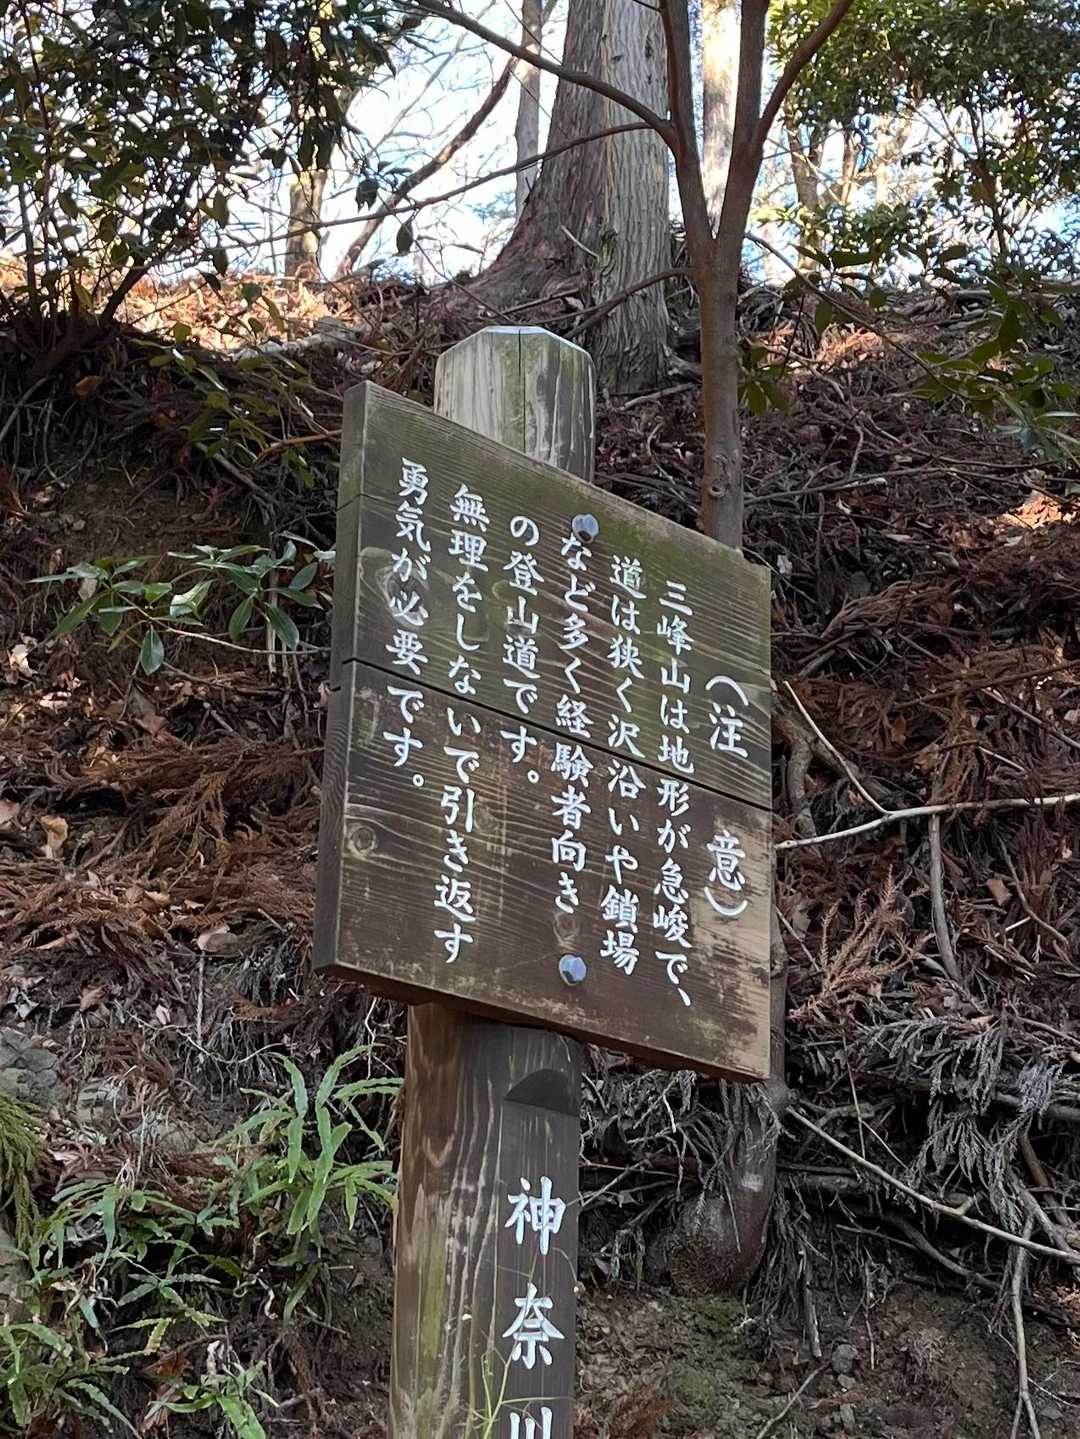 (注 意)
三峰山は地形が急峻で、
道は狭く沢沿いや鎖場
など多く経験者向き
の登山道です。
無理をしないで引き返す
勇気が必要です。
神奈川